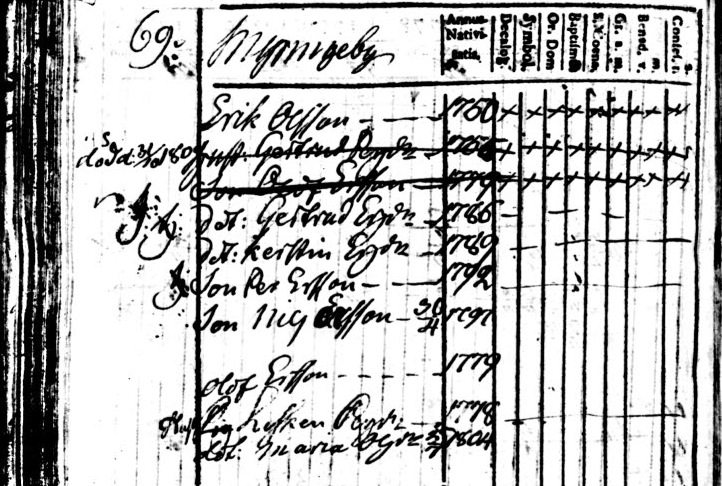 69.
Myningeby
Annus Nativitatis.
Decalog.
Symbol.
Or. Dom
Baptism
S. Coena
Gr. a. m.
Bened. v. m.
Confes. s.
Erik Olsson 1750
död d. 180 hust. Gertrud Persdr 1756
Son Olof Ersson 1779
dot: Gertrud Ersdr 1786
dot: Kerstin Ersdr 1789
Son Per Ersson 1792
Son Nils Ersson 30/4 1797
Olof Ersson 1779
Hust. Persdr 1778
dot: Maria Olsdr 1804